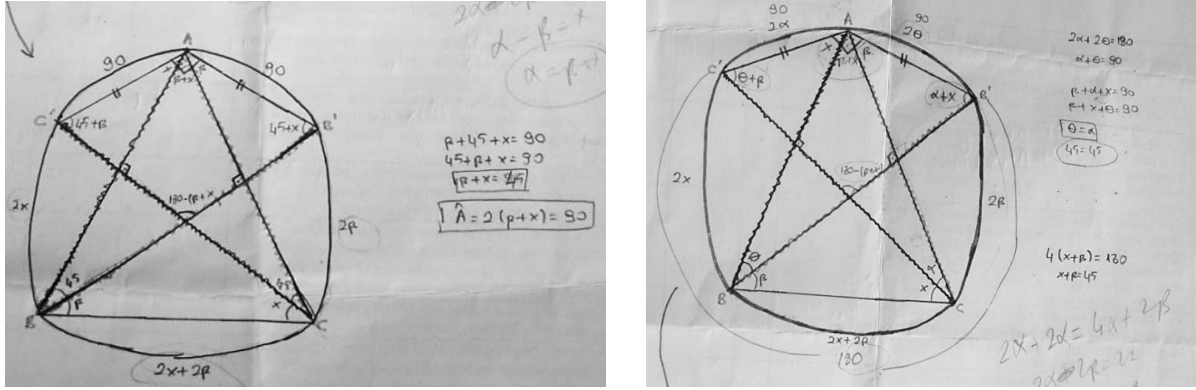 2α-2β
α-β=x
α=β+x
A
90
90
x
β
β+x
C'
45+β
45+x
B'
2x
180-(β+x)
2β
45
β
45
x
B
C
2x+2β
β+45+x=90
45+β+x=90
β+x=45
Â=2(β+x)=90
90
90
2α
A
2θ
x
β
β+x
C'
θ+β
α+x
B'
2x
180-(β+x)
2β
θ
β
α
x
B
C
2x+2β
180
2α+2θ=180
α+θ=90
β+α+x=90
β+x+θ=90
θ=α
45=45
4(x+β)=180
x+β=45
2x+2α=4x+2β